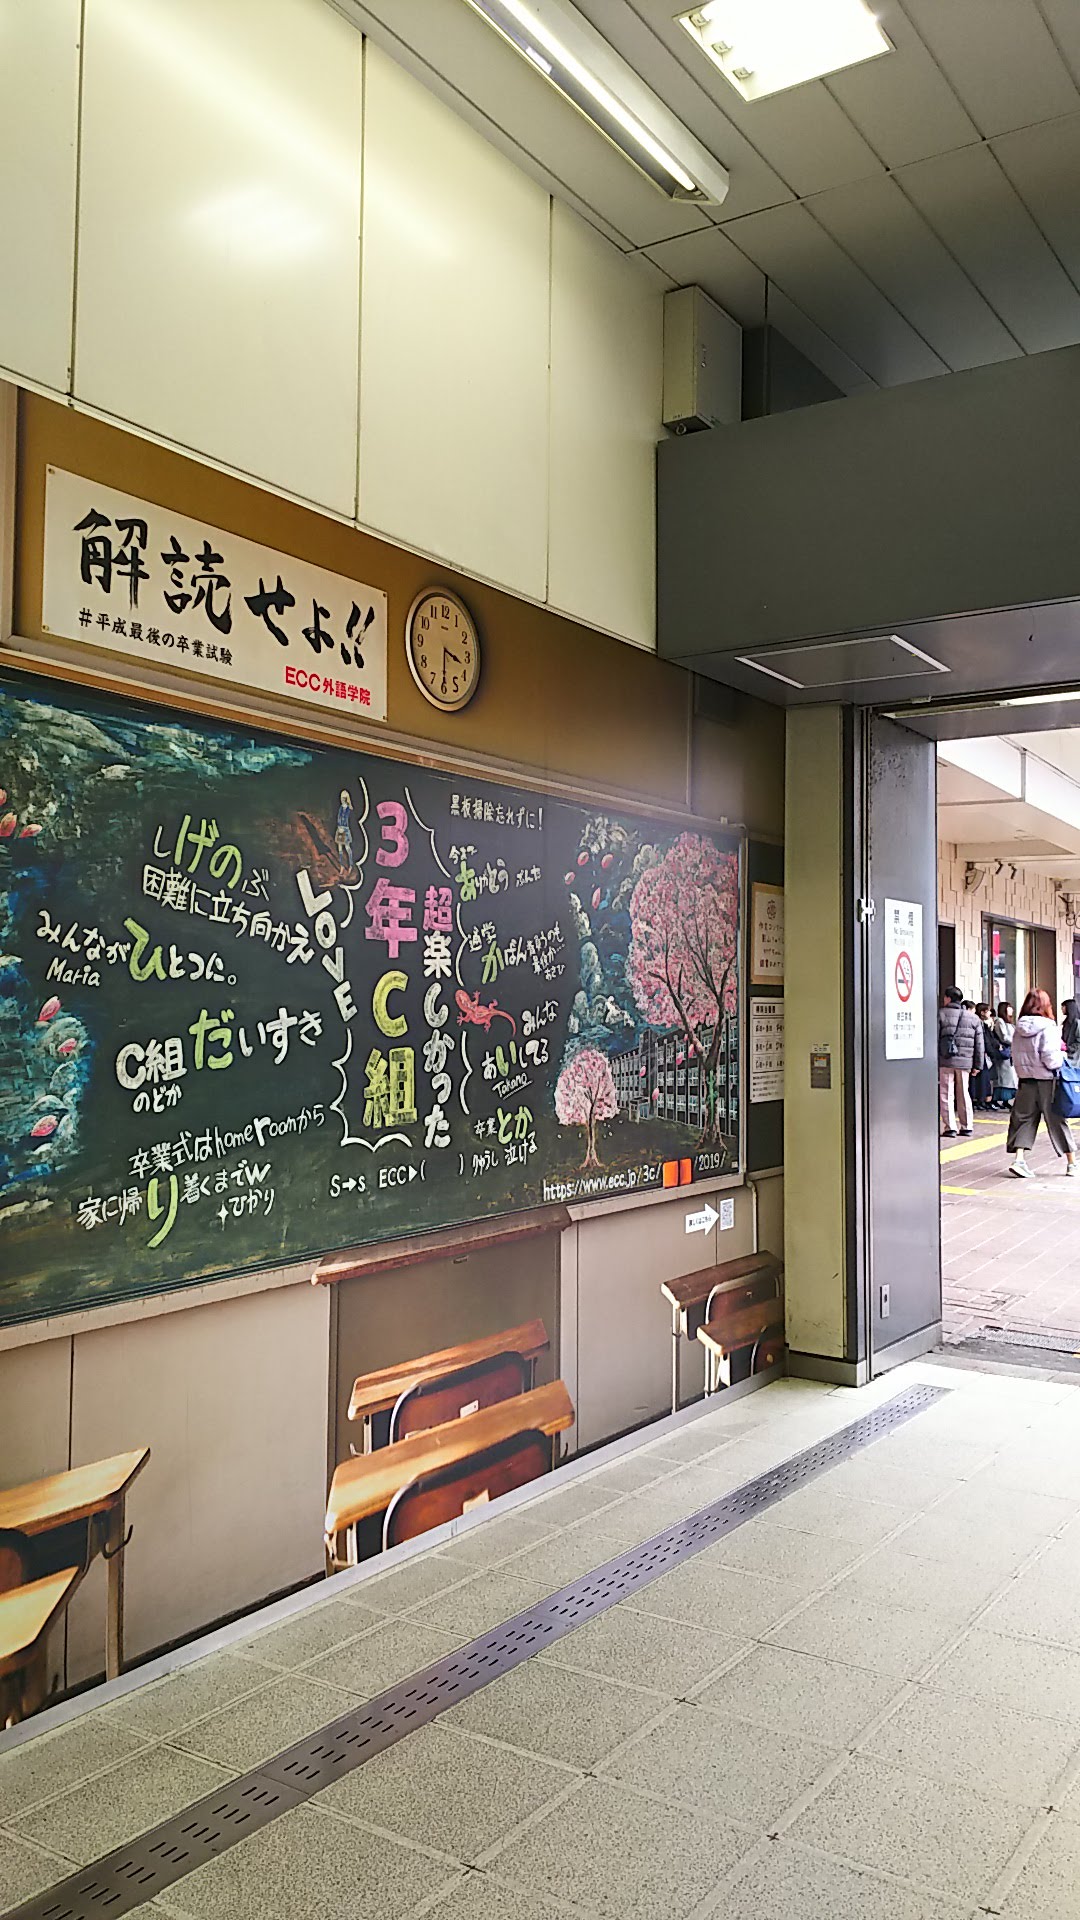 解読せよ!!
#平成最後の卒業試験
ECC外語学院
12
11
1
10
2
9
3
8
4
7
6
5
黒板掃除忘れずに!
3年C組
超楽しかった
LOVE
しげのぶ
困難に立ち向かえ
みんながひとつに。
Maria
C組だいすき
のどか
卒業式はhomeroomから
家に帰り着くまでw
ひかり
今まで
ありがとう
通学
かばん
みんな
あいしてる
Takano
卒業とか
泣ける
S→S ECC▶( )
https://www.ecc.jp/3c/
/2019/
詳しくはこちら
禁煙
No Smoking